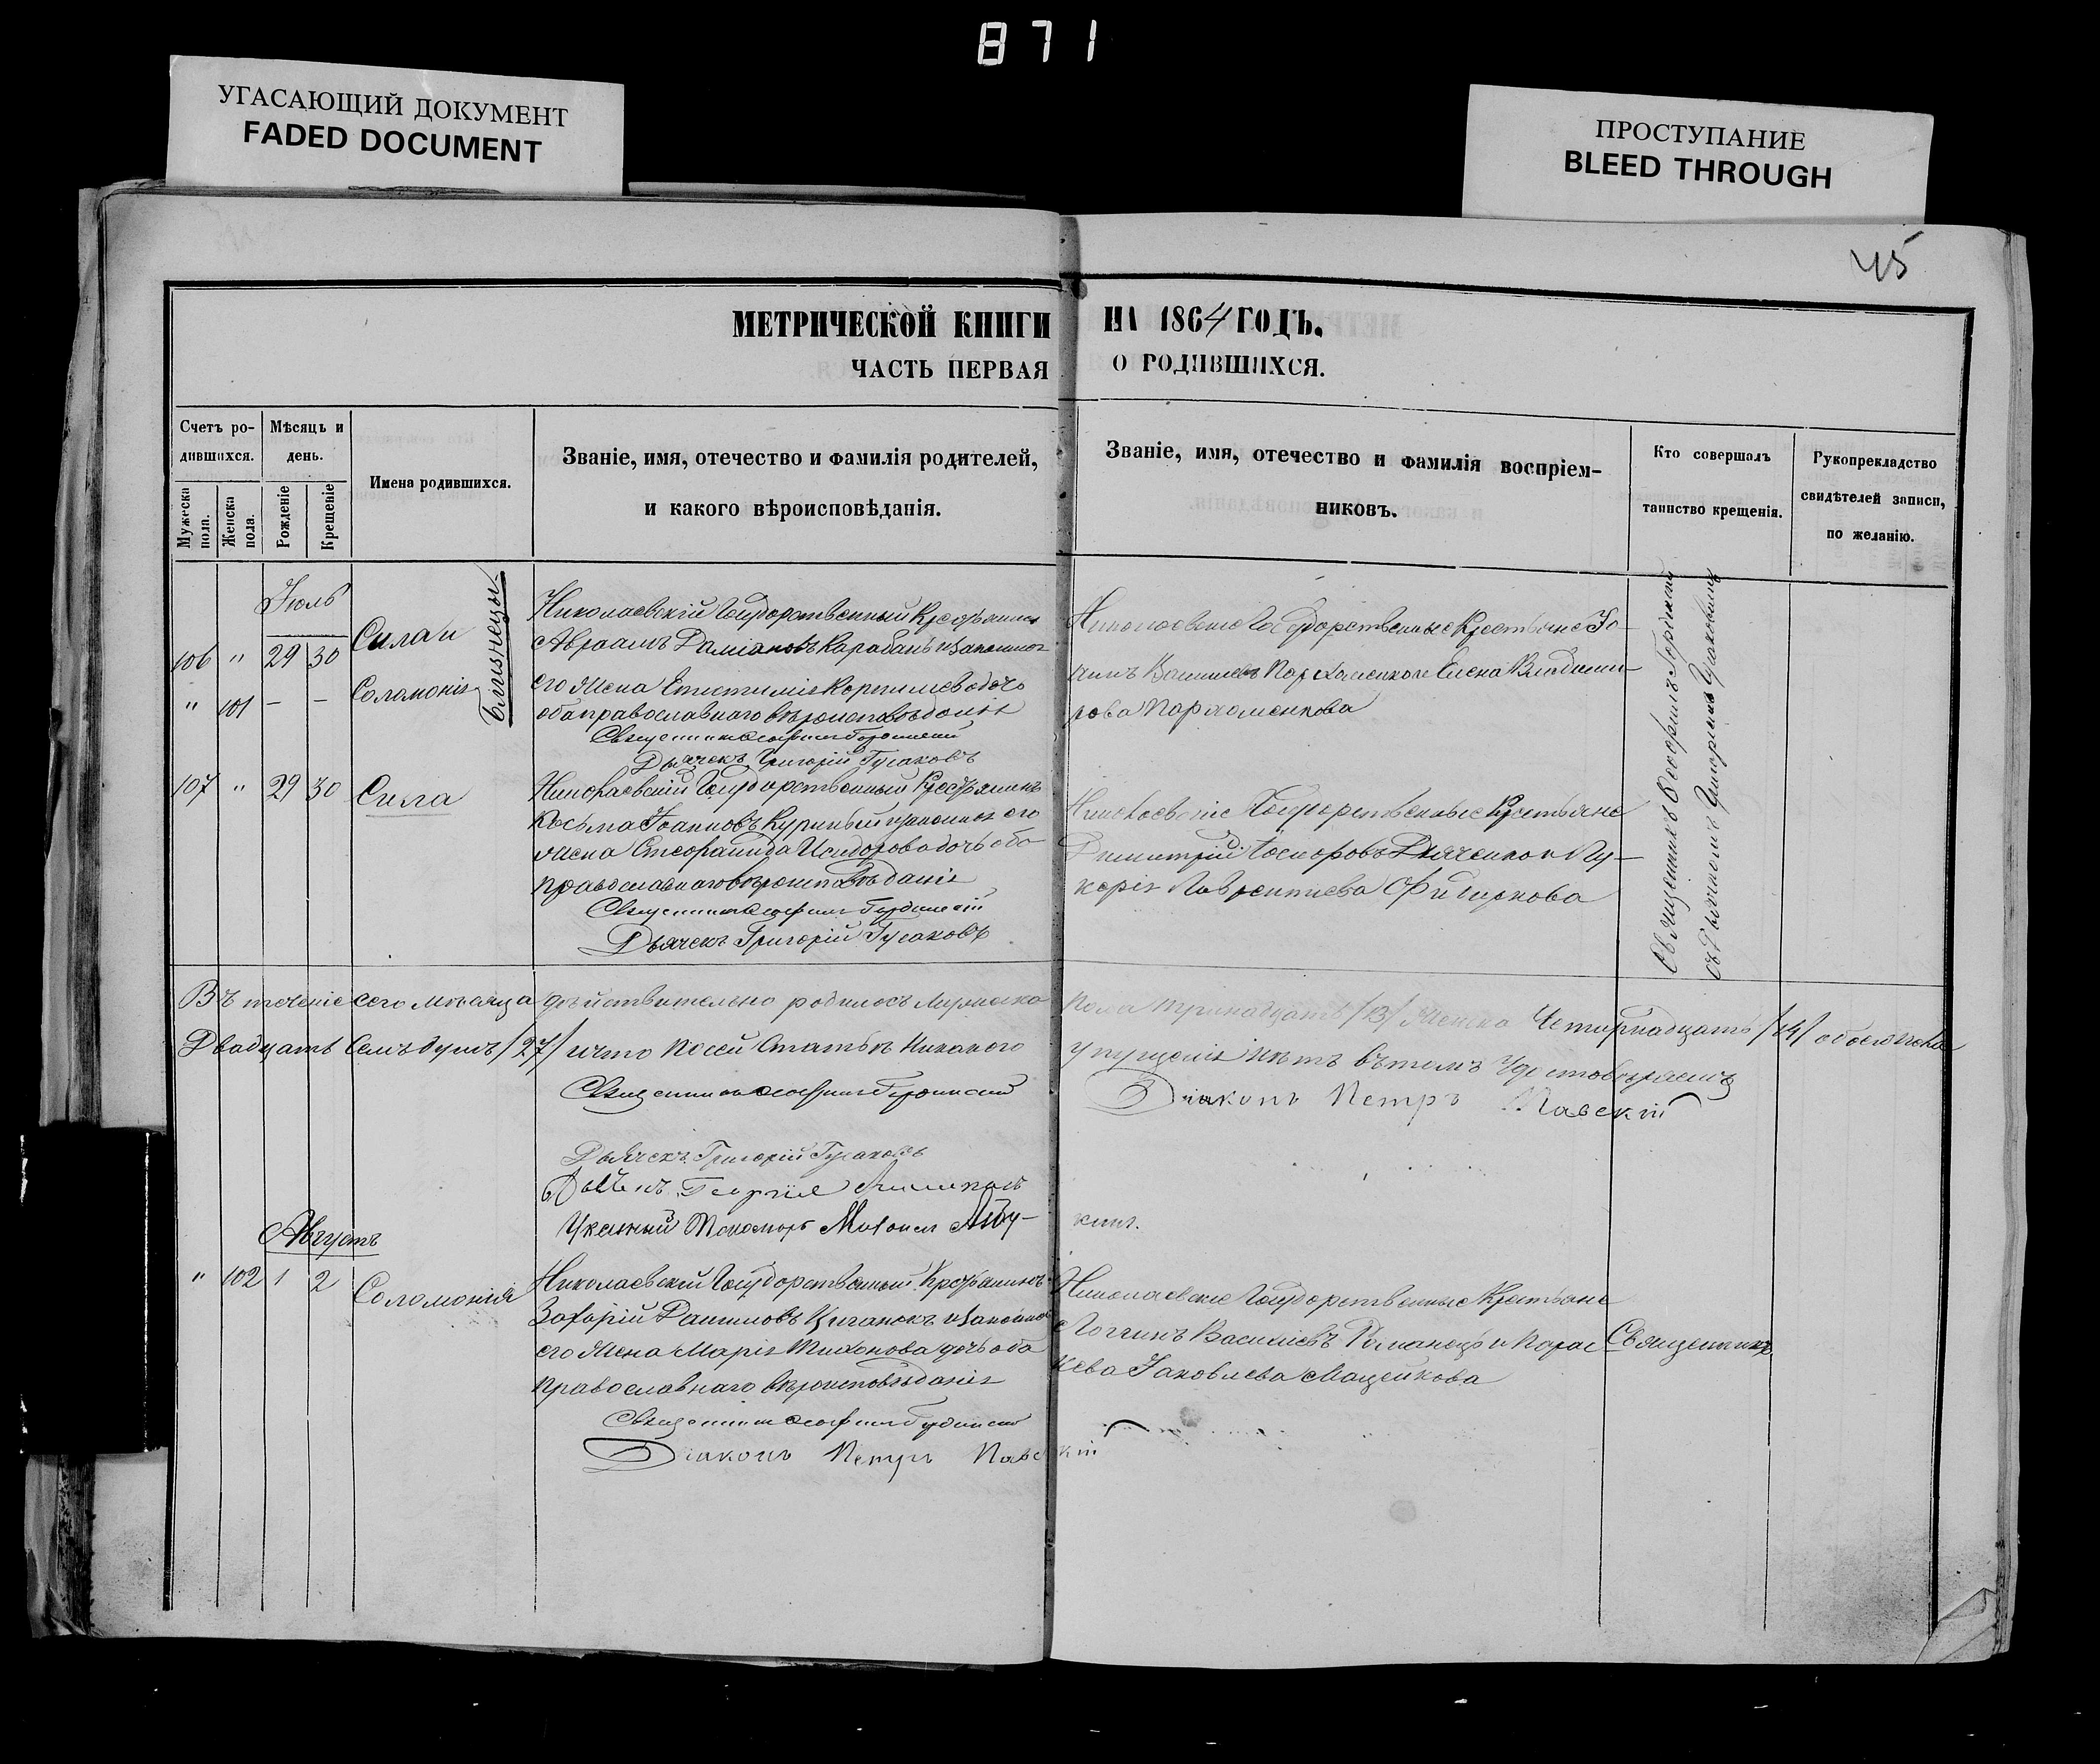 871
УГАСАЮЩИЙ ДОКУМЕНТ
FADED DOCUMENT
ПРОСТУПАНИЕ
BLEED THROUGH
45
МЕТРИЧЕСКОЙ КНИГИ НА 1864 ГОДЪ.
ЧАСТЬ ПЕРВАЯ О РОДИВШИХСЯ.
Счетъ ро-
дившихся.
Мужеска
пола.
Женска
пола.
Мѣсяцъ и
день.
Рожденіе
Крещеніе
Имена родившихся.
Званіе, имя, отечество и фамилія родителей,
и какого вѣроисповѣданія.
Званіе, имя, отечество и фамилія воспріем-
никовъ.
Кто совершалъ
таинство крещенія.
Рукоприкладство
свидѣтелей записи,
по желанію.
Іюль
106 " 29 30
Сила и
" 101 - -
Соломонія
Близнецы
Николаевскій Государственный Крестьянинъ
Авраамъ Даміановъ Карабанъ и законная
его жена Епистимія Корнилиева дочь
оба православнаго вѣроисповѣданія
Священникъ
Дьячекъ Григорій Гусаковъ
Николаевские Государственные Крестьяне
Василиевъ Пархоменко и Елена Владими-
рова Пархоменкова
Священникъ Феофилъ
съ Дьячкомъ Григоріемъ Гусаковымъ
107 " 29 30
Сила
Николаевскій Государственный Крестьянинъ
Косьма Іоанновъ и законная его
жена Стефанида Исидорова дочь оба
православнаго вѣроисповѣданія
Священникъ
Дьячекъ Григорій Гусаковъ
Николаевскіе Государственные Крестьяне
Димитрій Дяченко и Лу-
керія Лаврентиева
Въ теченіе сего мѣсяца дѣйствительно родилось мужеска пола тринадцать /13/ женска Четырнадцать /14/ обоего пола
Двадцать Семъ душъ /27/ и что по сей Статьѣ Никакого упущенія нѣтъ въ томъ Удостовѣряемъ
Священникъ
Діаконъ Петръ Павскій
Дьячекъ Григорій Гусаковъ
Указный Пономарь
Августъ
" 102 1 2
Соломонія
Николаевскій Государственный Крестьянинъ
Захарій Даниловъ Циганокъ и законная
его жена Марія Тихонова дочь оба
православнаго вѣроисповѣданія
Священникъ
Діаконъ Петръ Павскій
Николаевские Государственные Крестьяне
Логгинъ Василіевъ Романецъ и Парас-
кева Іаковлева Мацейкова
Священникъ